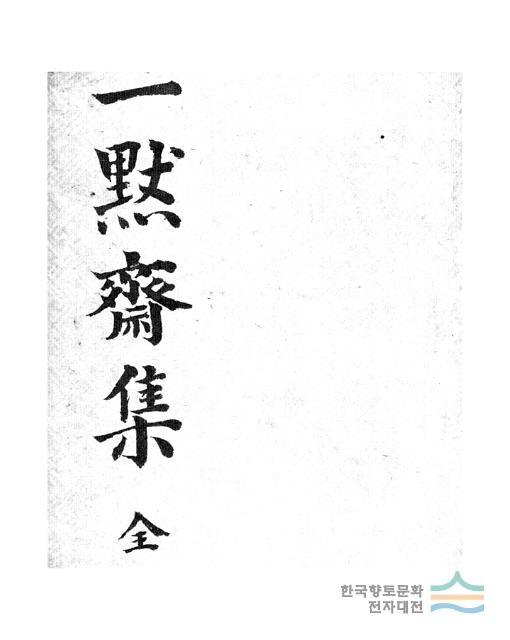 一默齋集 全
한국향토문화
전자대전